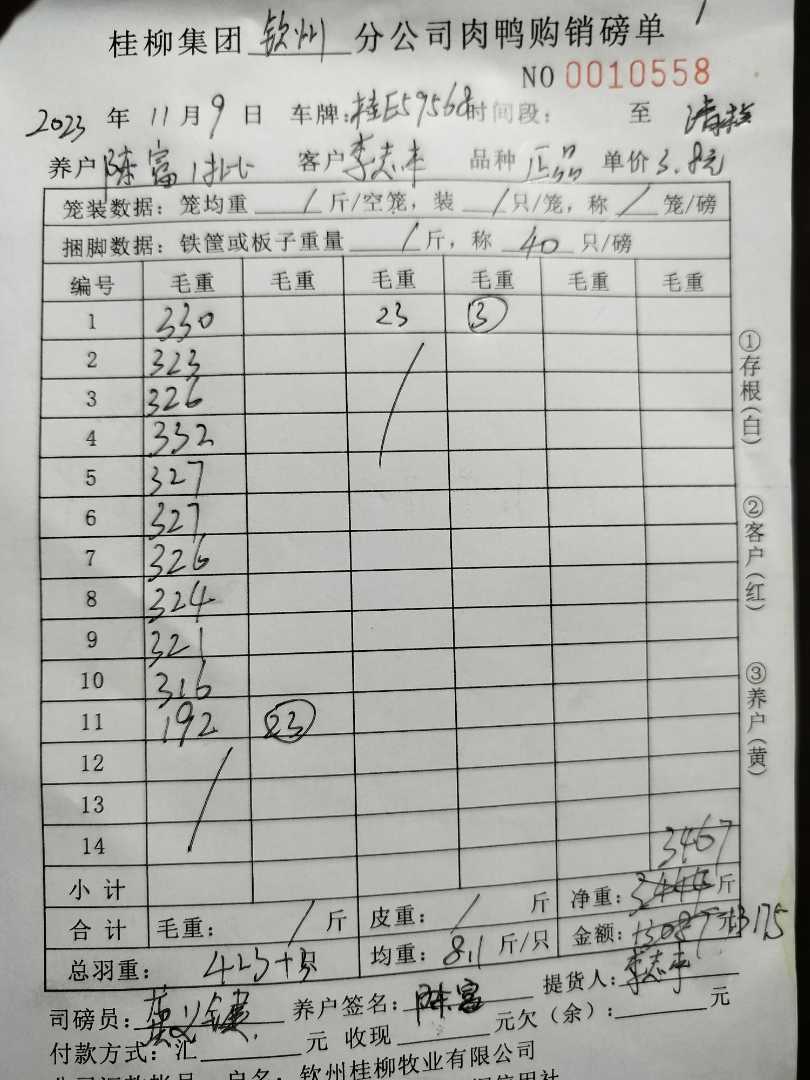 桂柳集团 钦州 分公司肉鸭购销磅单
NO 0010558
2023 年 11 月 9 日 车牌:桂E59568 时间段: 至
养户 陈富 1批 客户 李志平 品种 正品 单价 3.8元
笼装数据: 笼均重 / 斤/空笼, 装 / 只/笼, 称 / 笼/磅
捆脚数据: 铁筐或板子重量 / 斤, 称 40 只/磅
编号 毛重 毛重 毛重 毛重 毛重 毛重
1 330 23 3
2 323
3 326
4 332
5 327
6 327
7 326
8 324
9 321
10 316
11 192 23
12
13
14
3467
小计 净重: 3444 斤
合计 毛重: / 斤 皮重: / 斤 金额: 13087 元 13175
总羽重: 423+3 只 均重: 8.1 斤/只
司磅员: 养户签名: 陈富 提货人: 李志平
付款方式: 汇 元 收现 元欠(余): 元
户名: 钦州桂柳牧业有限公司
①存根(白)
②客户(红)
③养户(黄)